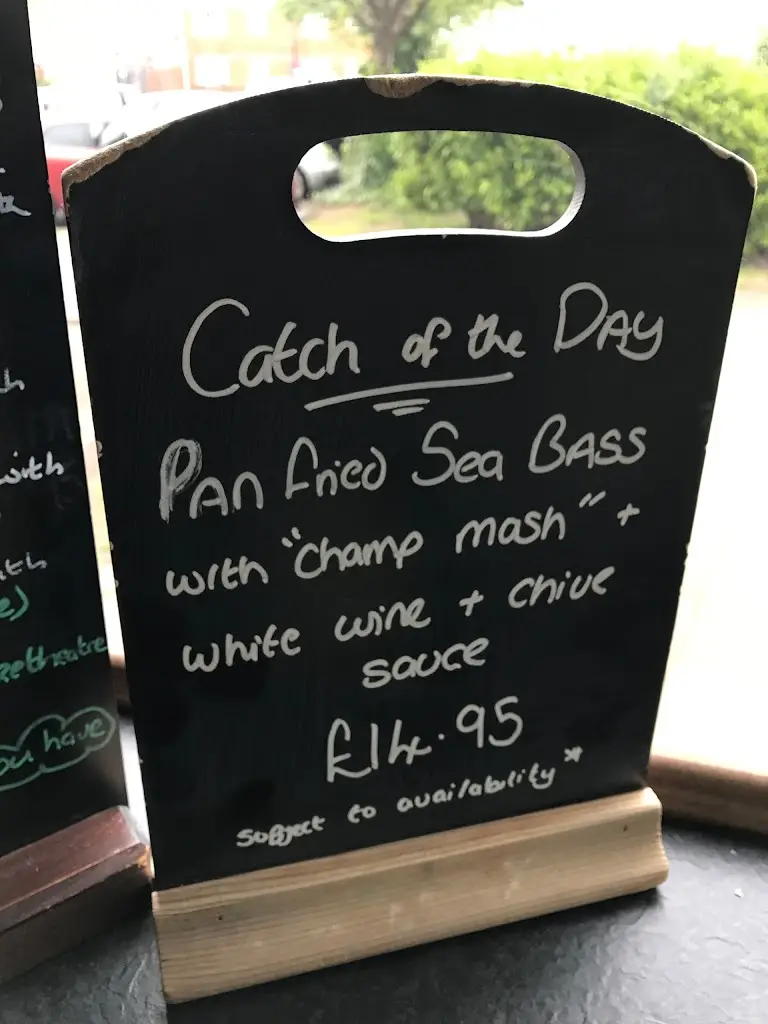 Catch of the DAY
PAN fried Sea BASS
with "champ mash" +
white wine + chive
sauce
£14.95
subject to availability*
with
ketheatre
you have